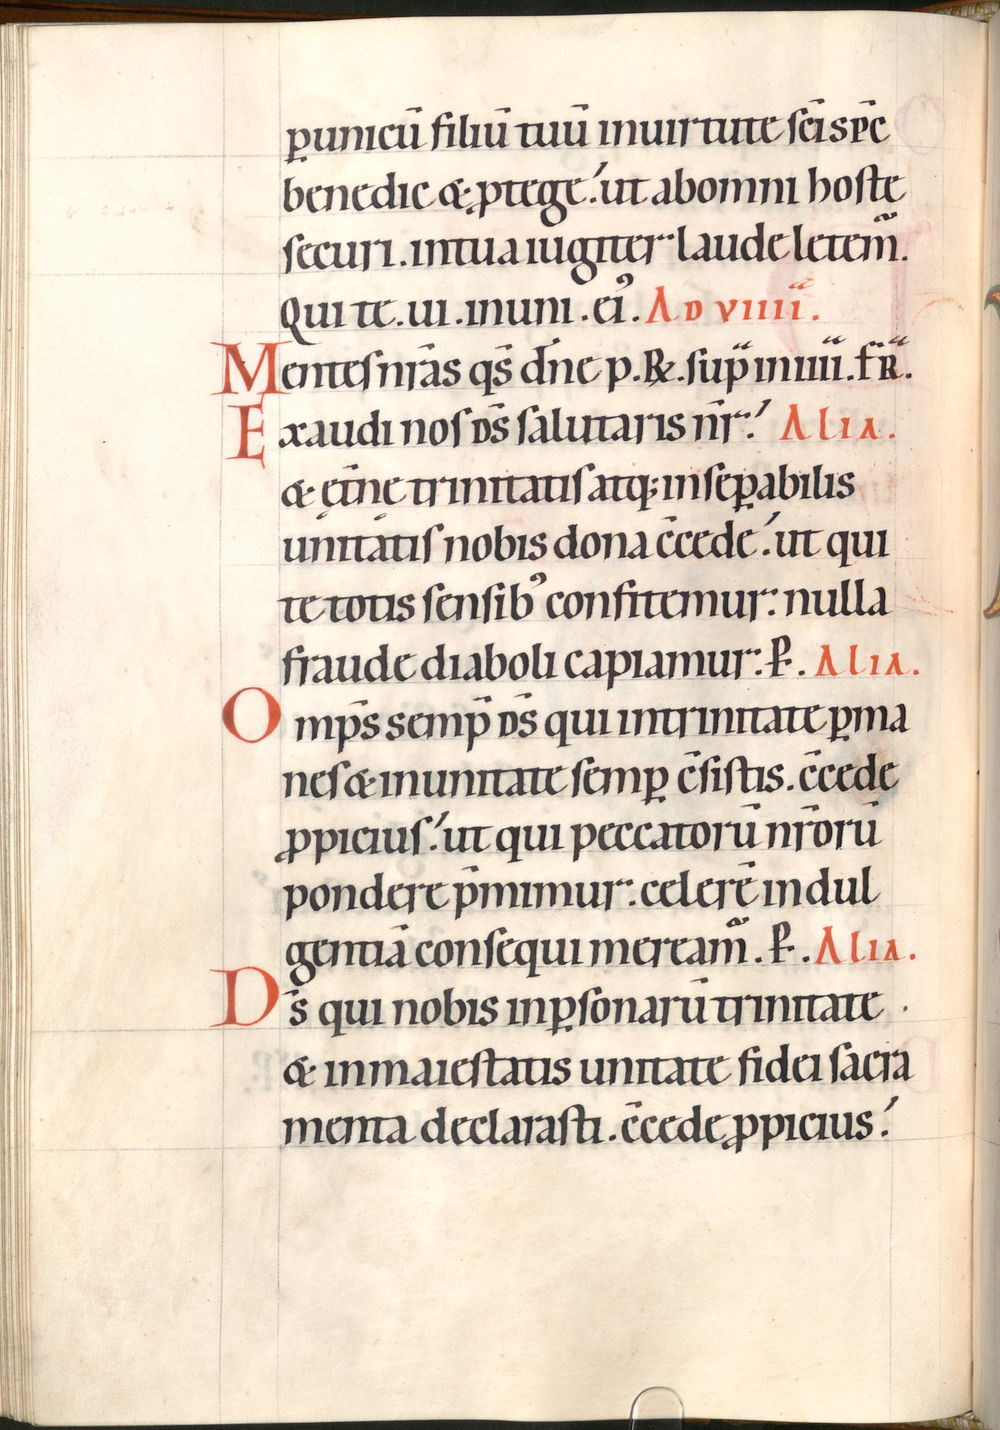 ꝑunicū filiū tuū inuirtute sc̄i sp̄c
benedic & ꝓtege. ut abomni hoste
securi. intua iugiter laude letem̄.
Qui te. ui. inuni. ei᾽. AD VIIII.
Mentes nr̄as qs̄ dn̄e p. R&. sup̄ in iiii. fr̄.
Exaudi nos ds̄ salutaris nr̄. Alia.
& et̄ne trinitatis atq; inseꝑabilis
unitatis nobis dona c̄cede. ut qui
te totis sensib᾽ confitemur. nulla
fraude diaboli capiamur. P. Alia.
Omp̄s semp̄ ds̄ qui intrinitate ꝑma
nes & inunitate semꝑ c̄sistis. c̄cede
ꝓpicius. ut qui peccatorū nr̄orū
pondere p̄mimur. celerē indul
gentiā consequi meream̄. P. Alia.
Ds̄ qui nobis inꝑsonarū trinitate
& inmaiestatis unitate fidei sacra
menta declarasti. c̄cede ꝓpicius.